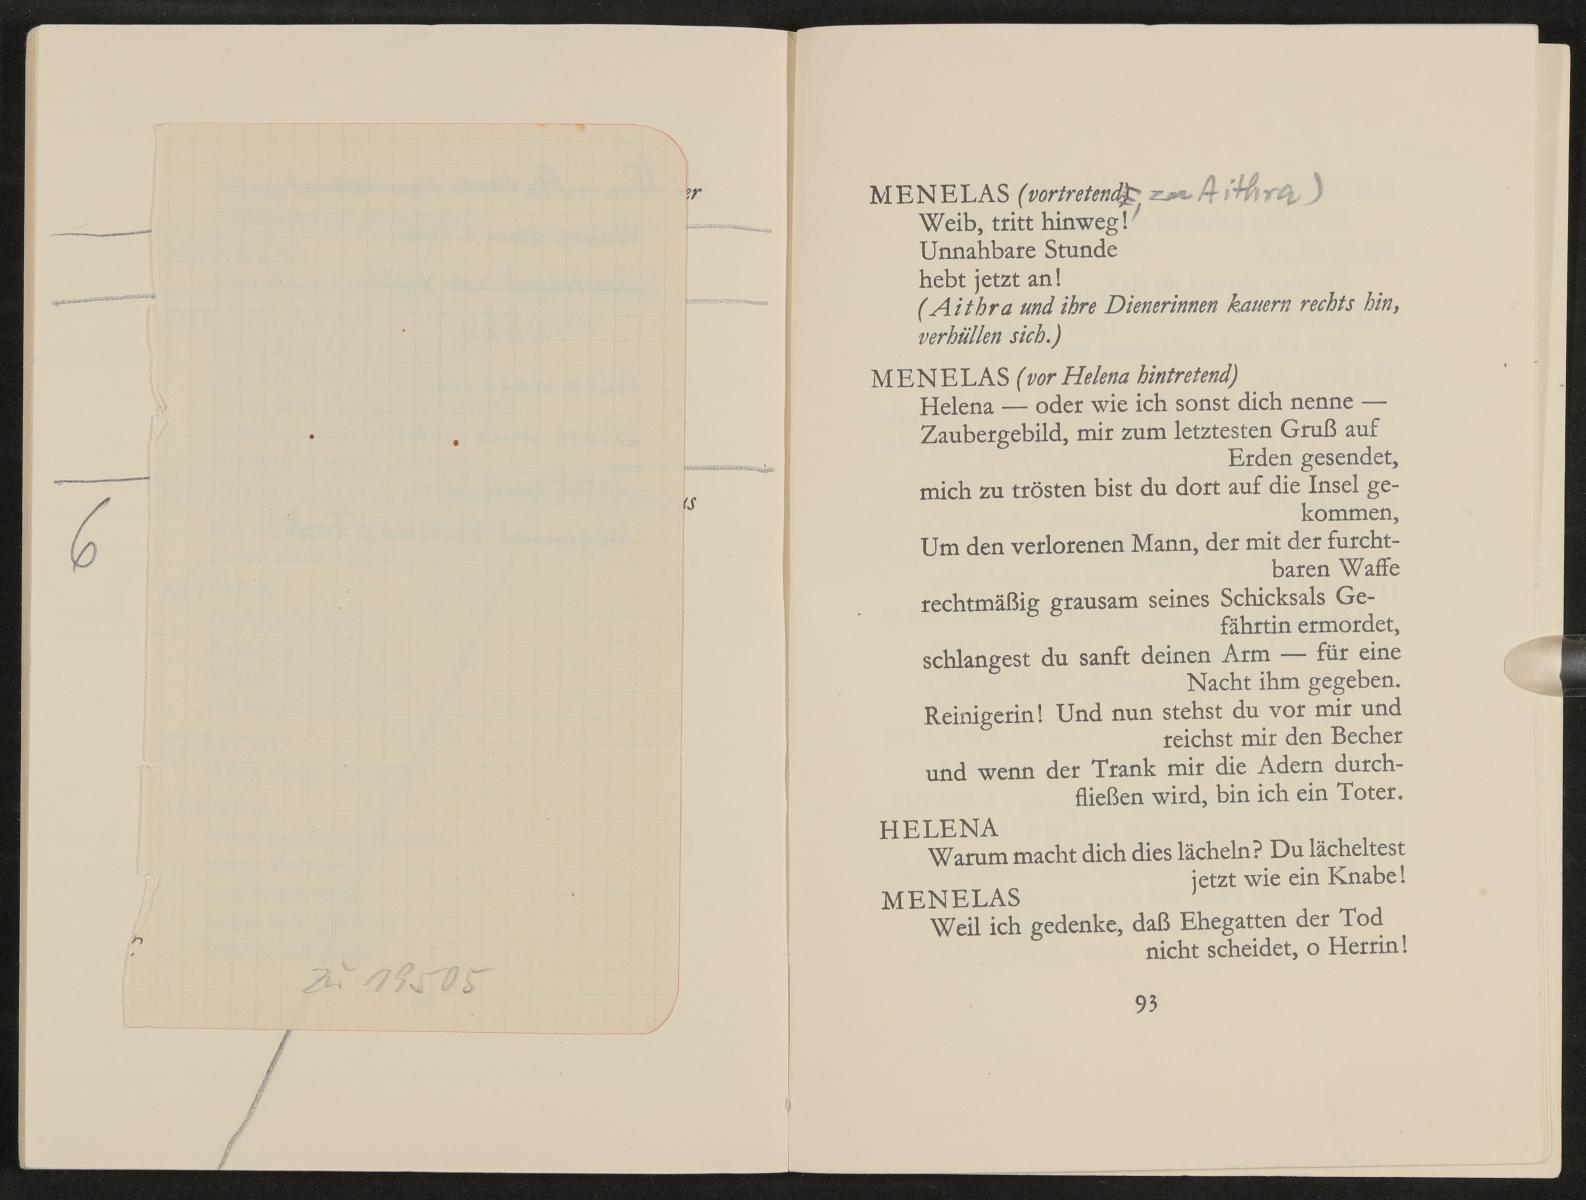 er
us
6
zu 19505
MENELAS (vortretend, zu Aithra)
Weib, tritt hinweg!
Unnahbare Stunde
hebt jetzt an!
(Aithra und ihre Dienerinnen kauern rechts hin,
verhüllen sich.)
MENELAS (vor Helena hintretend)
Helena — oder wie ich sonst dich nenne —
Zaubergebild, mir zum letztesten Gruß auf
Erden gesendet,
mich zu trösten bist du dort auf die Insel ge-
kommen,
Um den verlorenen Mann, der mit der furcht-
baren Waffe
rechtmäßig grausam seines Schicksals Ge-
fährtin ermordet,
schlangest du sanft deinen Arm — für eine
Nacht ihm gegeben.
Reinigerin! Und nun stehst du vor mir und
reichst mir den Becher
und wenn der Trank mir die Adern durch-
fließen wird, bin ich ein Toter.
HELENA
Warum macht dich dies lächeln? Du lächeltest
jetzt wie ein Knabe!
MENELAS
Weil ich gedenke, daß Ehegatten der Tod
nicht scheidet, o Herrin!
93